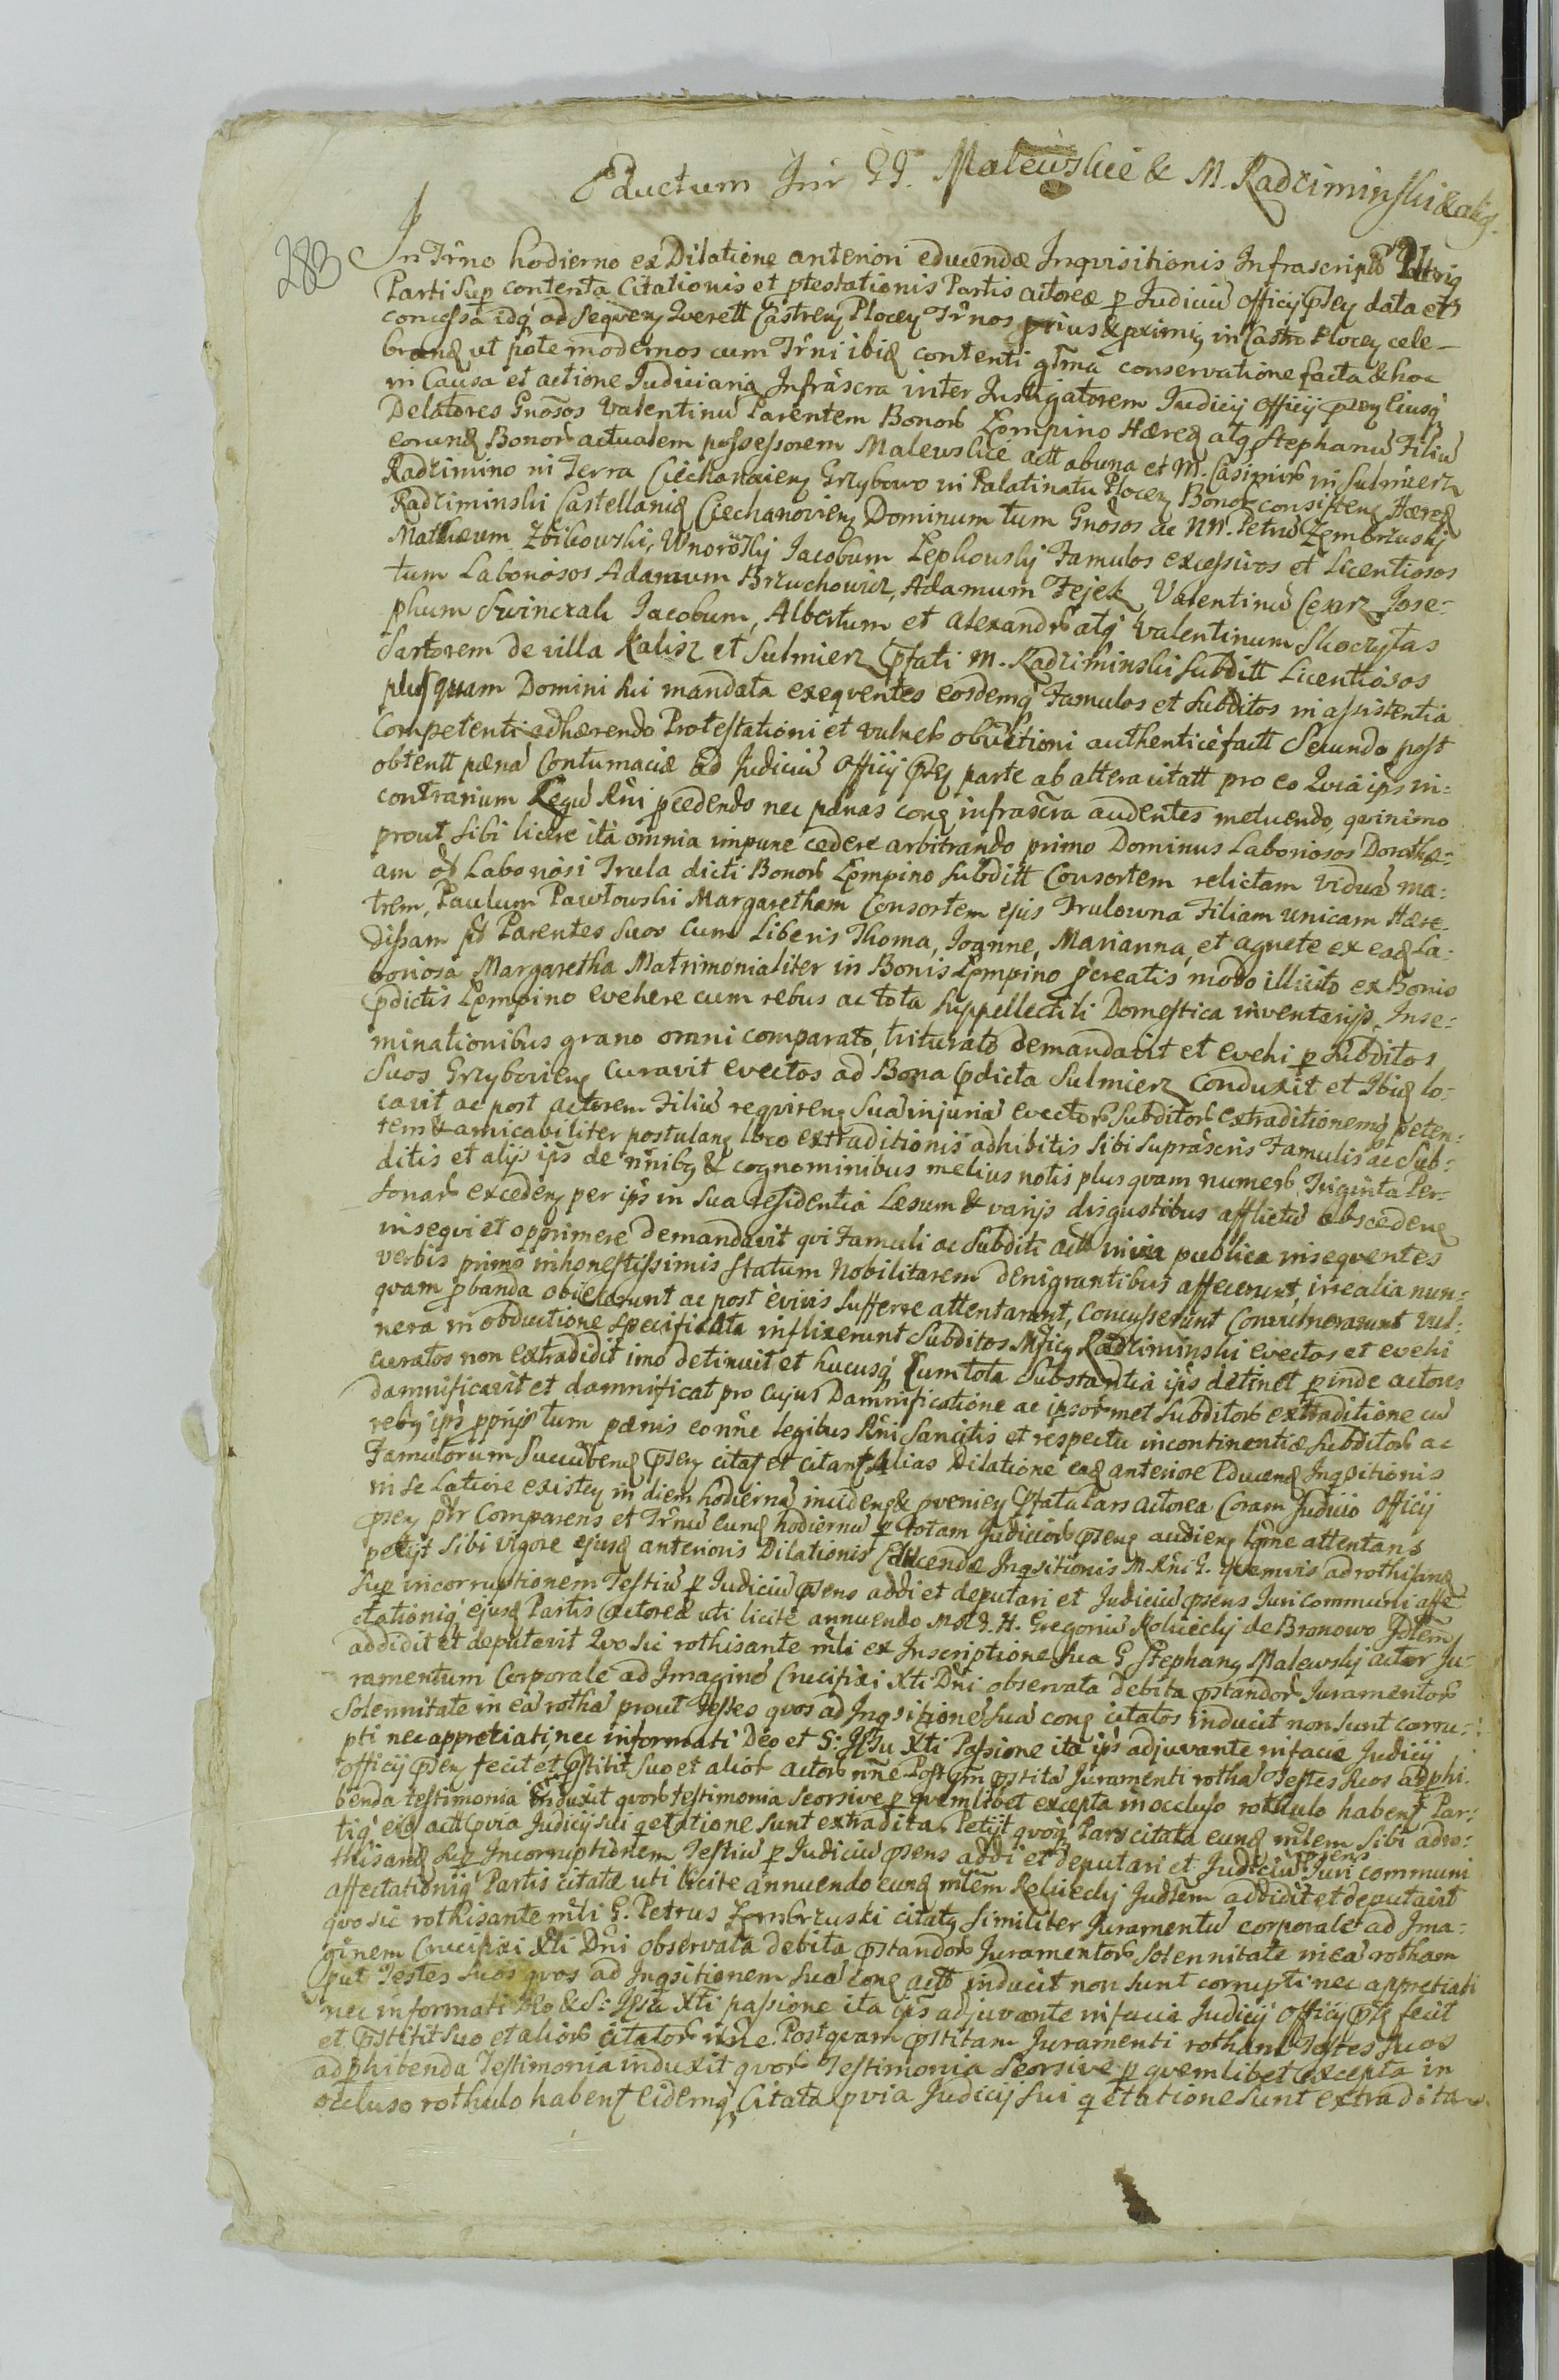 Eductum Inr GG. Malewskie & M. Radziminski & alios
283
In Trno hodierno ex Dilatione anteriori educendæ Inquisitionis Infrascriptis
Parti Sup contenta Citationis et ptestationis Partis actoreæ p Judiciu officij psen data et
concessa idq ad sequen Querell Castren Plocen Trnos prius & proximis in Castro Plocen cele-
brand ut pote modernos cum Trni ibid contenti conservatione facta & hoc
in Causa et actione Judiciaria Infrascra inter Instigatorem Judicij officij psen Eiusq
Delatores Gnosos Valentinu Parentem Bonor Lempino Hæred atq Stephanu Filiu
eorund Bonor actualem possessorem Malewskie act ab una et M. Casimir in Sulmierz
Radzimino in Terra Ciechanovien Grzybowo in Palatinatu Plocen Bonor consisten Hæred
Radziminski Castellanid Ciechanovien Dominum tum Gnosos ac NN. Petru Zembrzuskj
Mathæum Zbikowski, Wnorosky Jacobum Lepkowskj Famulos excessivos et Licentiosos
tum Laboriosos Adamum Brzuchowicz, Adamum Fejek Valentinu Cexarz Jose-
phum Swinczak Jacobum, Albertum et Alexandr atq Valentinum Skoczylas
Sartorem de villa Kalisz et Sulmierz pfati M. Radziminski Subditt Licentiosos
plus quam Domini sui mandata exeqventes eosdemq Famulos et Subditos in assistentia
Competenti adhærendo Protestationi et vulner obductioni authentice factt Secundo post
obtentt pæna Contumaciæ ad Judiciu officij psen parte ab altera citatt pro eo Quia ips in-
contrarium Legu Rni pcedendo nec pænas cong infrascra audentes metuendo qvinimo
prout sibi licere ita omnia impune cedere arbitrando primo Dominus Laboriosos Dorothe-
am od Laboriosi Trula dicti Bonor Lempino Subditt Consortem relictam Vidua ma-
trem, Paulum Pawlowski Margaretham Consortem ejus Trulowna Filiam unicam Hære-
dissam pd Parentes suos Cum Liberis Thoma, Joanne, Marianna, et Agnete ex ead La-
boriosa Margaretha Matrimonialiter in Bonis Lempino pcreatis modo illicito ex Bonis
pdictis Lempino evehere cum rebus ac tota Suppellectili Domestica inventarijs, Inse-
minationibus grano omni comparato, triturato demandavit et evehi p Subditos
Suos Grzybovien curavit evectos ad Bona pdicta Sulmierz Conduxit et Ibid lo-
cavit ac post actorem Filiu reqviren Sua injuria evector Subditor extraditionemq peten-
tem & amicabiliter postulang loco extraditionis adhibitis sibi suprascris Famulis ac Sub-
ditis et alijs ips de nnibq & cognominibus melius notis plus qvam numero Triginta Per-
sonar exceden per ips in sua residentia Læsum & varijs disgustibus afflictu abscedene
inseqvi et opprimere demandavit qvi Famuli ac Subditi actt in via publica inseqventes
verbis primo inhonestissimis statum Nobilitarem denigrantibus affecerunt, irrealia nun-
qvam pbanda obiecerunt ac post e vivis sufferre attentarunt, concusserunt Convulnerarunt vul-
nera in obductione specificata inflixerunt Subditos Radziminski evectos et evehi
curatos non extradidit imo detinuit et hucusq Cum tota Substantia ips detinet pinde actores
damnificavit et damnificat pro cujus Damnificatione ac ipsormet Subditor extraditione cu
rebq ips pprijs tum pænis eo nne legibus Rni Sancitis et respectu incontinentiæ Subditor ac
Famulorum succumbend psen citat et citant Alias Dilatione ead anteriore Educend Inqsitionis
in se Latiore existen in diem hodierna inciden & pvenien pfata Pars actorea Coram Judicio officij
psen ptr Comparens et Trnu eund hodiernu p totam Judicior psens audien attentans
petijt sibi vigore ejusd anterioris Dilationis Educendæ Inqsitionis M. Rni G. qvemvis ad rothisand
Sup incorruptionem Testiu p Judiciu psens addi et deputari et Judiciu psens Juri communi affe-
ctationiq ejusd Partis actoreæ uti licite annuendo M. Gregoriu Roluieckj de Bronowo Idem
addidit et deputavit Quo sic rothisante mli ex Inscriptione sua G Stephanq Malewskj actor Ju-
ramentum Corporale ad Imagine Crucifixi Xti Dni observata debita pstandor Juramentor
solennitate in ea rotha prout Testes qvos ad Inqsitione sua cong citatos inducit non sunt corru-
pti nec appretiati nec informati Deo et S: Jesu Xti Passione ita ips adjuvante in facie Judicij
officij psen fecit et pstitit suo et alior actor nne Post qm pstita Juramenti rotha Testes suos ad phi-
benda testimonia induxit qvor testimonia seorsive p qvemlibet excepta in occluso rothulo habent Par-
tiq eid actt pvia Judicij sui qetatione sunt extradita. Petijt qvoq Pars citata eund mlem sibi adro-
thisand Sup Incorruptionem Testiu p Judiciu psens addi et deputari et Judiciu psens Juri communi
affectationiq Partis citatæ uti licite annuendo eund mlem Roluieckj Judlem addidit et deputavit
qvo sic rothisante mli G. Petrus Zembrzuski citatq similiter Juramentu corporale ad Ima-
ginem Crucifixi Xti Dni observata debita pstandor Juramentor solennitate in ea rotham
put Testes suos qvos ad Inqsitionem sua cong actt inducit non sunt corrupti nec appretiati
nec informati Deo & S: Jesu Xti passione ita ips adjuvante in facie Judicij officij psen fecit
et pstitit suo et alior citator nne. Postqvam pstitam Juramenti rotham Testes suos
ad phibenda Testimonia induxit qvor Testimonia seorsive p qvemlibet excepta in
occluso rothulo habent eidemq Citata pvia Judicij sui qetatione sunt extradita